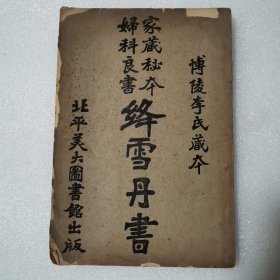 博陵李氏藏本
家藏秘本
婦科良書
絳雪丹書
北平美大圖書館出版